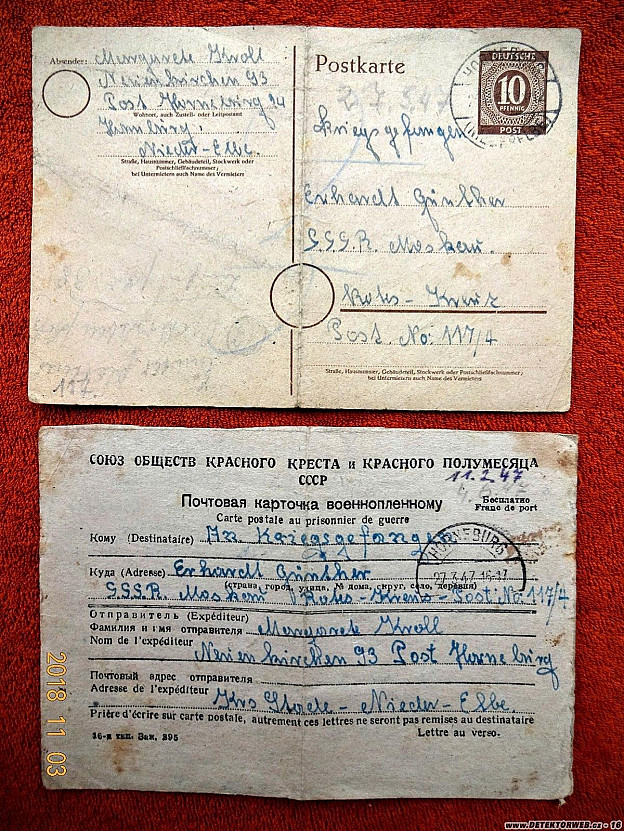 Absender:
Margarete Kroll
Neuenkirchen 93
Post Horneburg 24
Wohnort, auch Zustell- oder Leitpostamt
Hamburg,
Nieder-Elbe.
Straße, Hausnummer, Gebäudeteil, Stockwerk oder
Postschließfachnummer;
bei Untermietern auch Name des Vermieters
117
Postkarte
27.3.47
HORNEBURG
DEUTSCHE
10
PFENNIG
POST
Kriegsgefangen
Erhardt Günther
S.S.S.R. Moskau.
Rotes-Kreuz
Post. No: 117/4
Straße, Hausnummer, Gebäudeteil, Stockwerk oder Postschließfachnummer;
bei Untermietern auch Name des Vermieters
СОЮЗ ОБЩЕСТВ КРАСНОГО КРЕСТА и КРАСНОГО ПОЛУМЕСЯЦА
СССР
11.2.47
Почтовая карточка военнопленному
Бесплатно
Carte postale au prisonnier de guerre
Franc de port
Кому (Destinataire) An Kriegsgefangen
HORNEBURG
27.3.47.16-17
Куда (Adresse) Erhardt Günther
(страна, город, улица, № дома, округ, село, деревня)
S.S.S.R. Moskau Rotes-Kreus-Post No: 117/4
Отправитель (Expéditeur)
Фамилия и имя отправителя Margarete Kroll
Nom de l'expéditeur
Neuenkirchen 93 Post Horneburg
Почтовый адрес отправителя
Adresse de l'expéditeur Krs Stade - Nieder-Elbe.
Prière d'écrire sur carte postale, autrement ces lettres ne seront pas remises au destinataire
16-я тип. Зак. 395
Lettre au verso.
2018 11 03
www.DETEKTORWEB.cz - 16